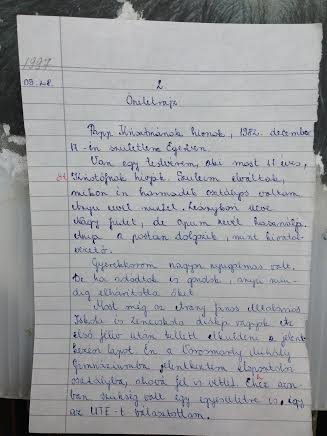 1997
09.28.
2.
Önéletrajz
Papp Krisztinának hívnak, 1982. december
17-én születtem Egerben.
Van egy testvérem, aki most 11 éves,
Kristófnak hívják. Szüleim elváltak,
mikor én harmadik osztályos voltam
Anyu nevel minket. Leánykori neve
Nagy Judit, de Apum nevét használja.
Anyu a postán dolgozik, mint hivatal
vezető.
Gyerekkorom nagyon nyugalmas volt.
De ha adódtak is gondok, anyu min-
dig elhárította őket.
Most még az Arany János Általános
Iskola és Zeneiskola diákja vagyok de
első félév után kellett elküldeni a jelent-
kezési lapot. Én a Vörösmarty Mihály
Gimnáziumba jelentkeztem
osztályba, ahova fel is vettek. Ehez azon-
ban szükség volt egy egyesületre is, így
az UTE-t választottam.